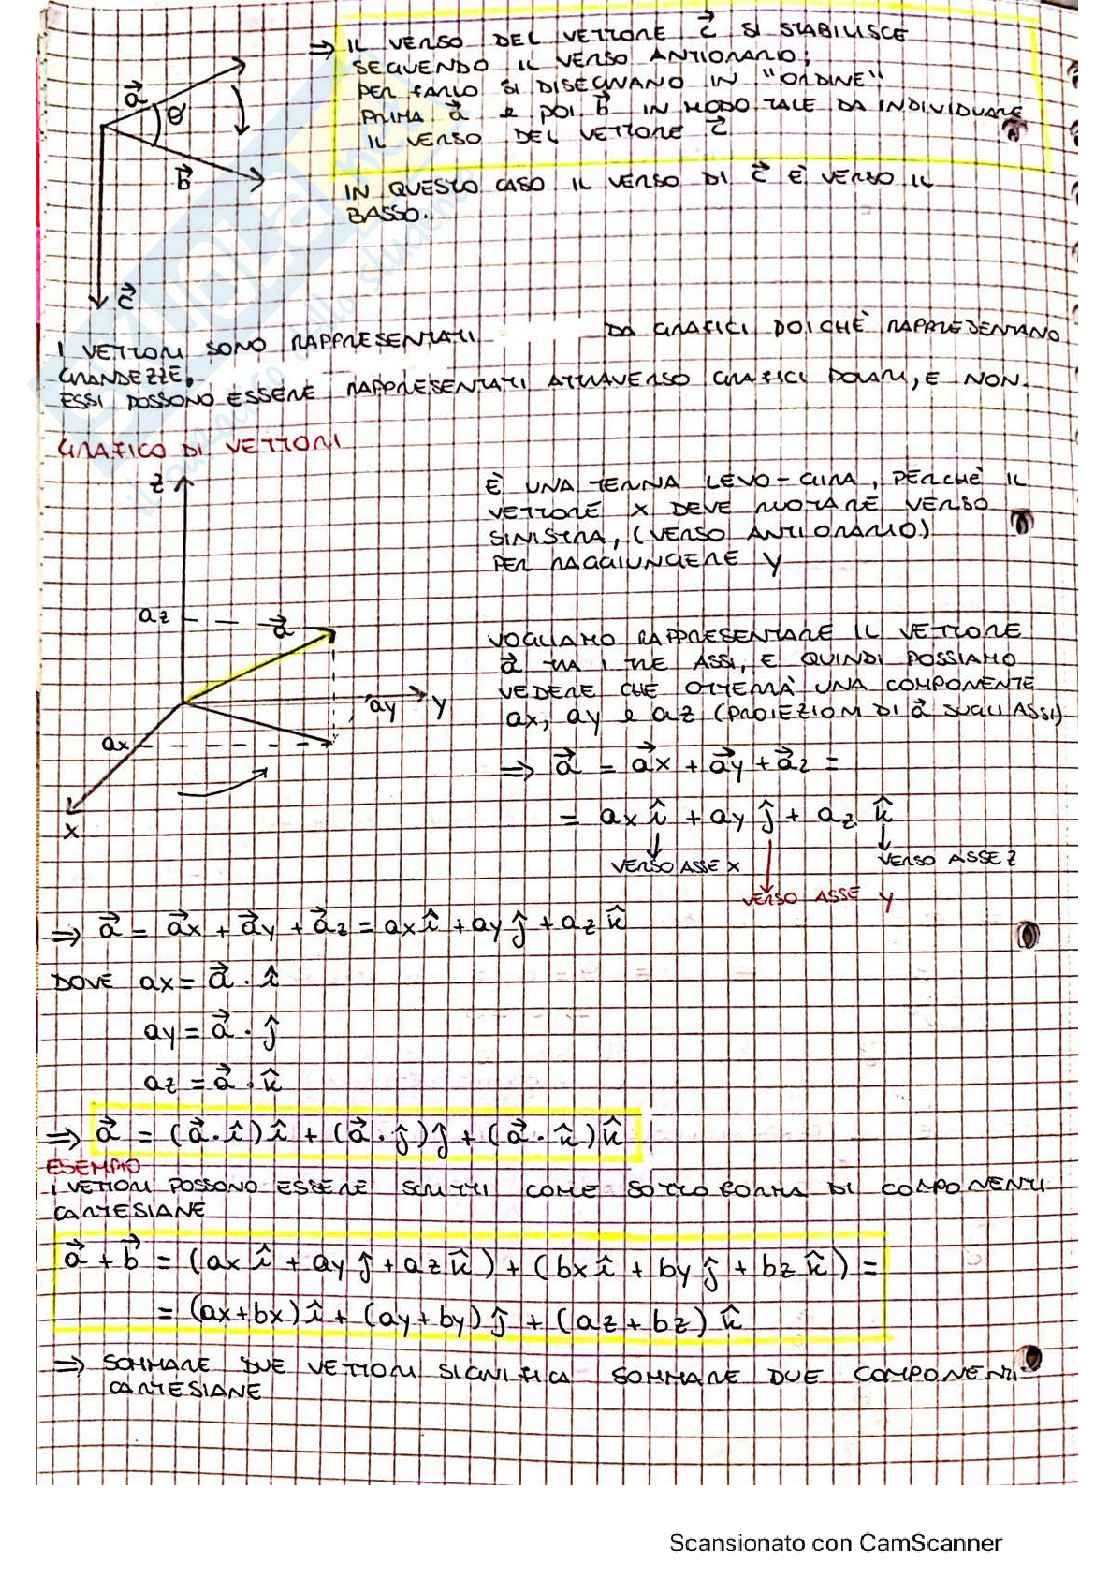 ⇒ IL VERSO DEL VETTORE c⃗ SI STABILISCE
SEGUENDO IL VERSO ANTIORARIO;
PER FARLO SI DISEGNANO IN "ORDINE"
PRIMA a⃗ e POI b⃗ IN MODO TALE DA INDIVIDUARE
IL VERSO DEL VETTORE c⃗
a⃗
θ
b⃗
c⃗
IN QUESTO CASO IL VERSO DI c⃗ È VERSO IL
BASSO.
I VETTORI SONO RAPPRESENTATI DA GRAFICI POICHÈ RAPPRESENTANO
GRANDEZZE.
ESSI POSSONO ESSERE RAPPRESENTATI ATTRAVERSO GRAFICI POLARI, E NON.
GRAFICO DI VETTORI
È UNA TERNA LEVO-GIRA, PERCHÈ IL
VETTORE X DEVE RUOTARE VERSO
SINISTRA, (VERSO ANTIORARIO)
PER RAGGIUNGERE Y
z
az
a⃗
ay
y
ax
x
VOGLIAMO RAPPRESENTARE IL VETTORE
a⃗ TRA I TRE ASSI, E QUINDI POSSIAMO
VEDERE CHE OTTERRÀ UNA COMPONENTE
ax, ay e az (PROIEZIONI DI a⃗ SUGLI ASSI)
⇒ a⃗ = a⃗x + a⃗y + a⃗z =
= ax î + ay ĵ + az k̂
VERSO ASSE X
VERSO ASSE Z
VERSO ASSE Y
⇒ a⃗ = a⃗x + a⃗y + a⃗z = ax î + ay ĵ + az k̂
DOVE ax = a⃗ · î
ay = a⃗ · ĵ
az = a⃗ · k̂
⇒ a⃗ = (a⃗ · î) î + (a⃗ · ĵ) ĵ + (a⃗ · k̂) k̂
ESEMPIO
I VETTORI POSSONO ESSERE SCRITTI COME SOTTO FORMA DI COMPONENTI
CARTESIANE
a⃗ + b⃗ = (ax î + ay ĵ + az k̂) + (bx î + by ĵ + bz k̂) =
= (ax+bx) î + (ay+by) ĵ + (az+bz) k̂
⇒ SOMMARE DUE VETTORI SIGNIFICA SOMMARE DUE COMPONENTI
CARTESIANE
Scansionato con CamScanner